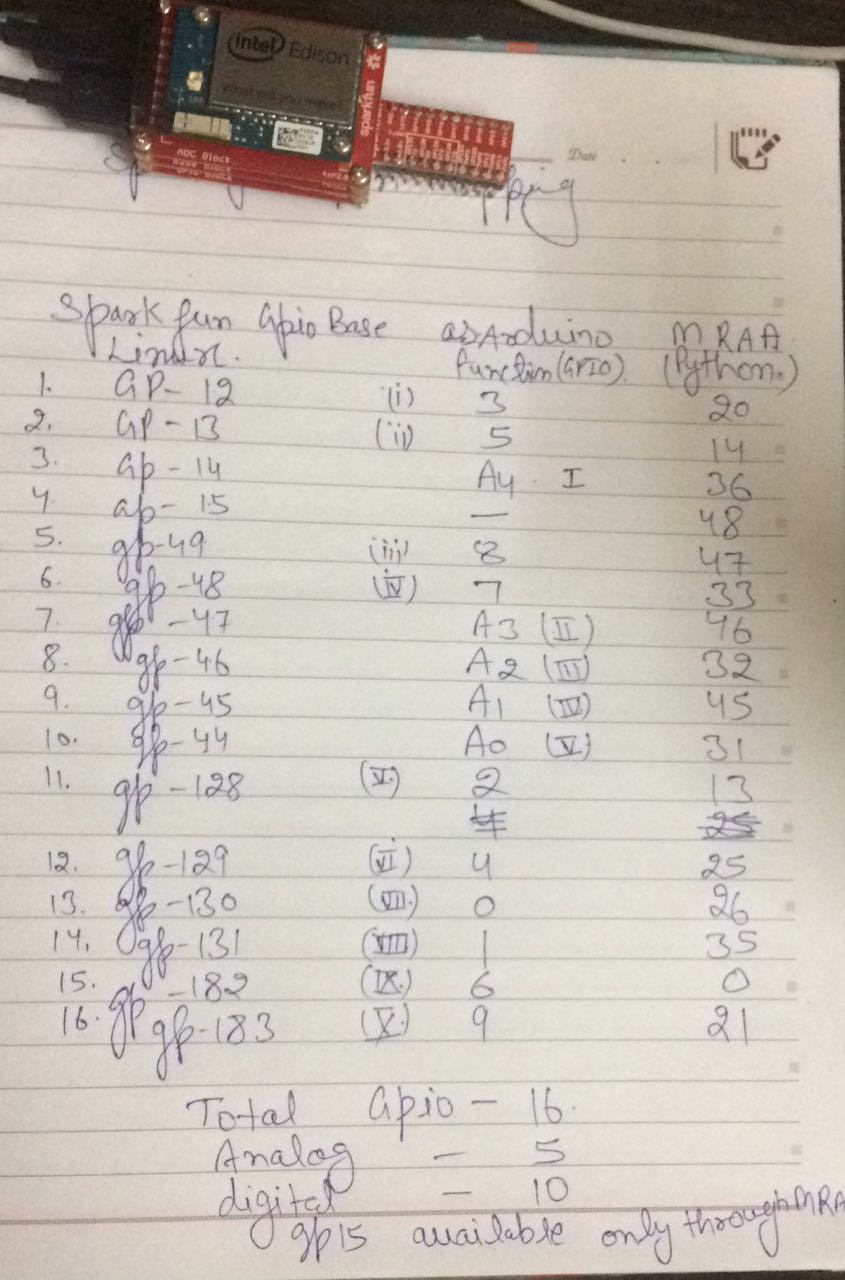 intel Edison
What will you make?
sparkfun
ADC Block
Base Block
GPIO Block
Date
pping
Spark fun Gpio Base as Arduino MRAA
Linux. function (GPIO). (Python.)
1. GP-12 (i) 3 20
2. GP-13 (ii) 5 14
3. Gp-14 A4 I 36
4. Gp-15 — 48
5. gp-49 (iii) 8 47
6. gp-48 (iv) 7 33
7. gp-47 A3 (II) 46
8. gp-46 A2 (III) 32
9. gp-45 A1 (IV) 45
10. gp-44 A0 (V.) 31
11. gp-128 (V.) 2 13
4 25
12. gp-129 (VI) 4 25
13. gp-130 (VII.) 0 26
14. gp-131 (VIII) 1 35
15. gp-182 (IX.) 6 0
16. gp-183 (X.) 9 21
Total Gpio - 16.
Analog - 5
digital - 10
gp15 available only through MRA